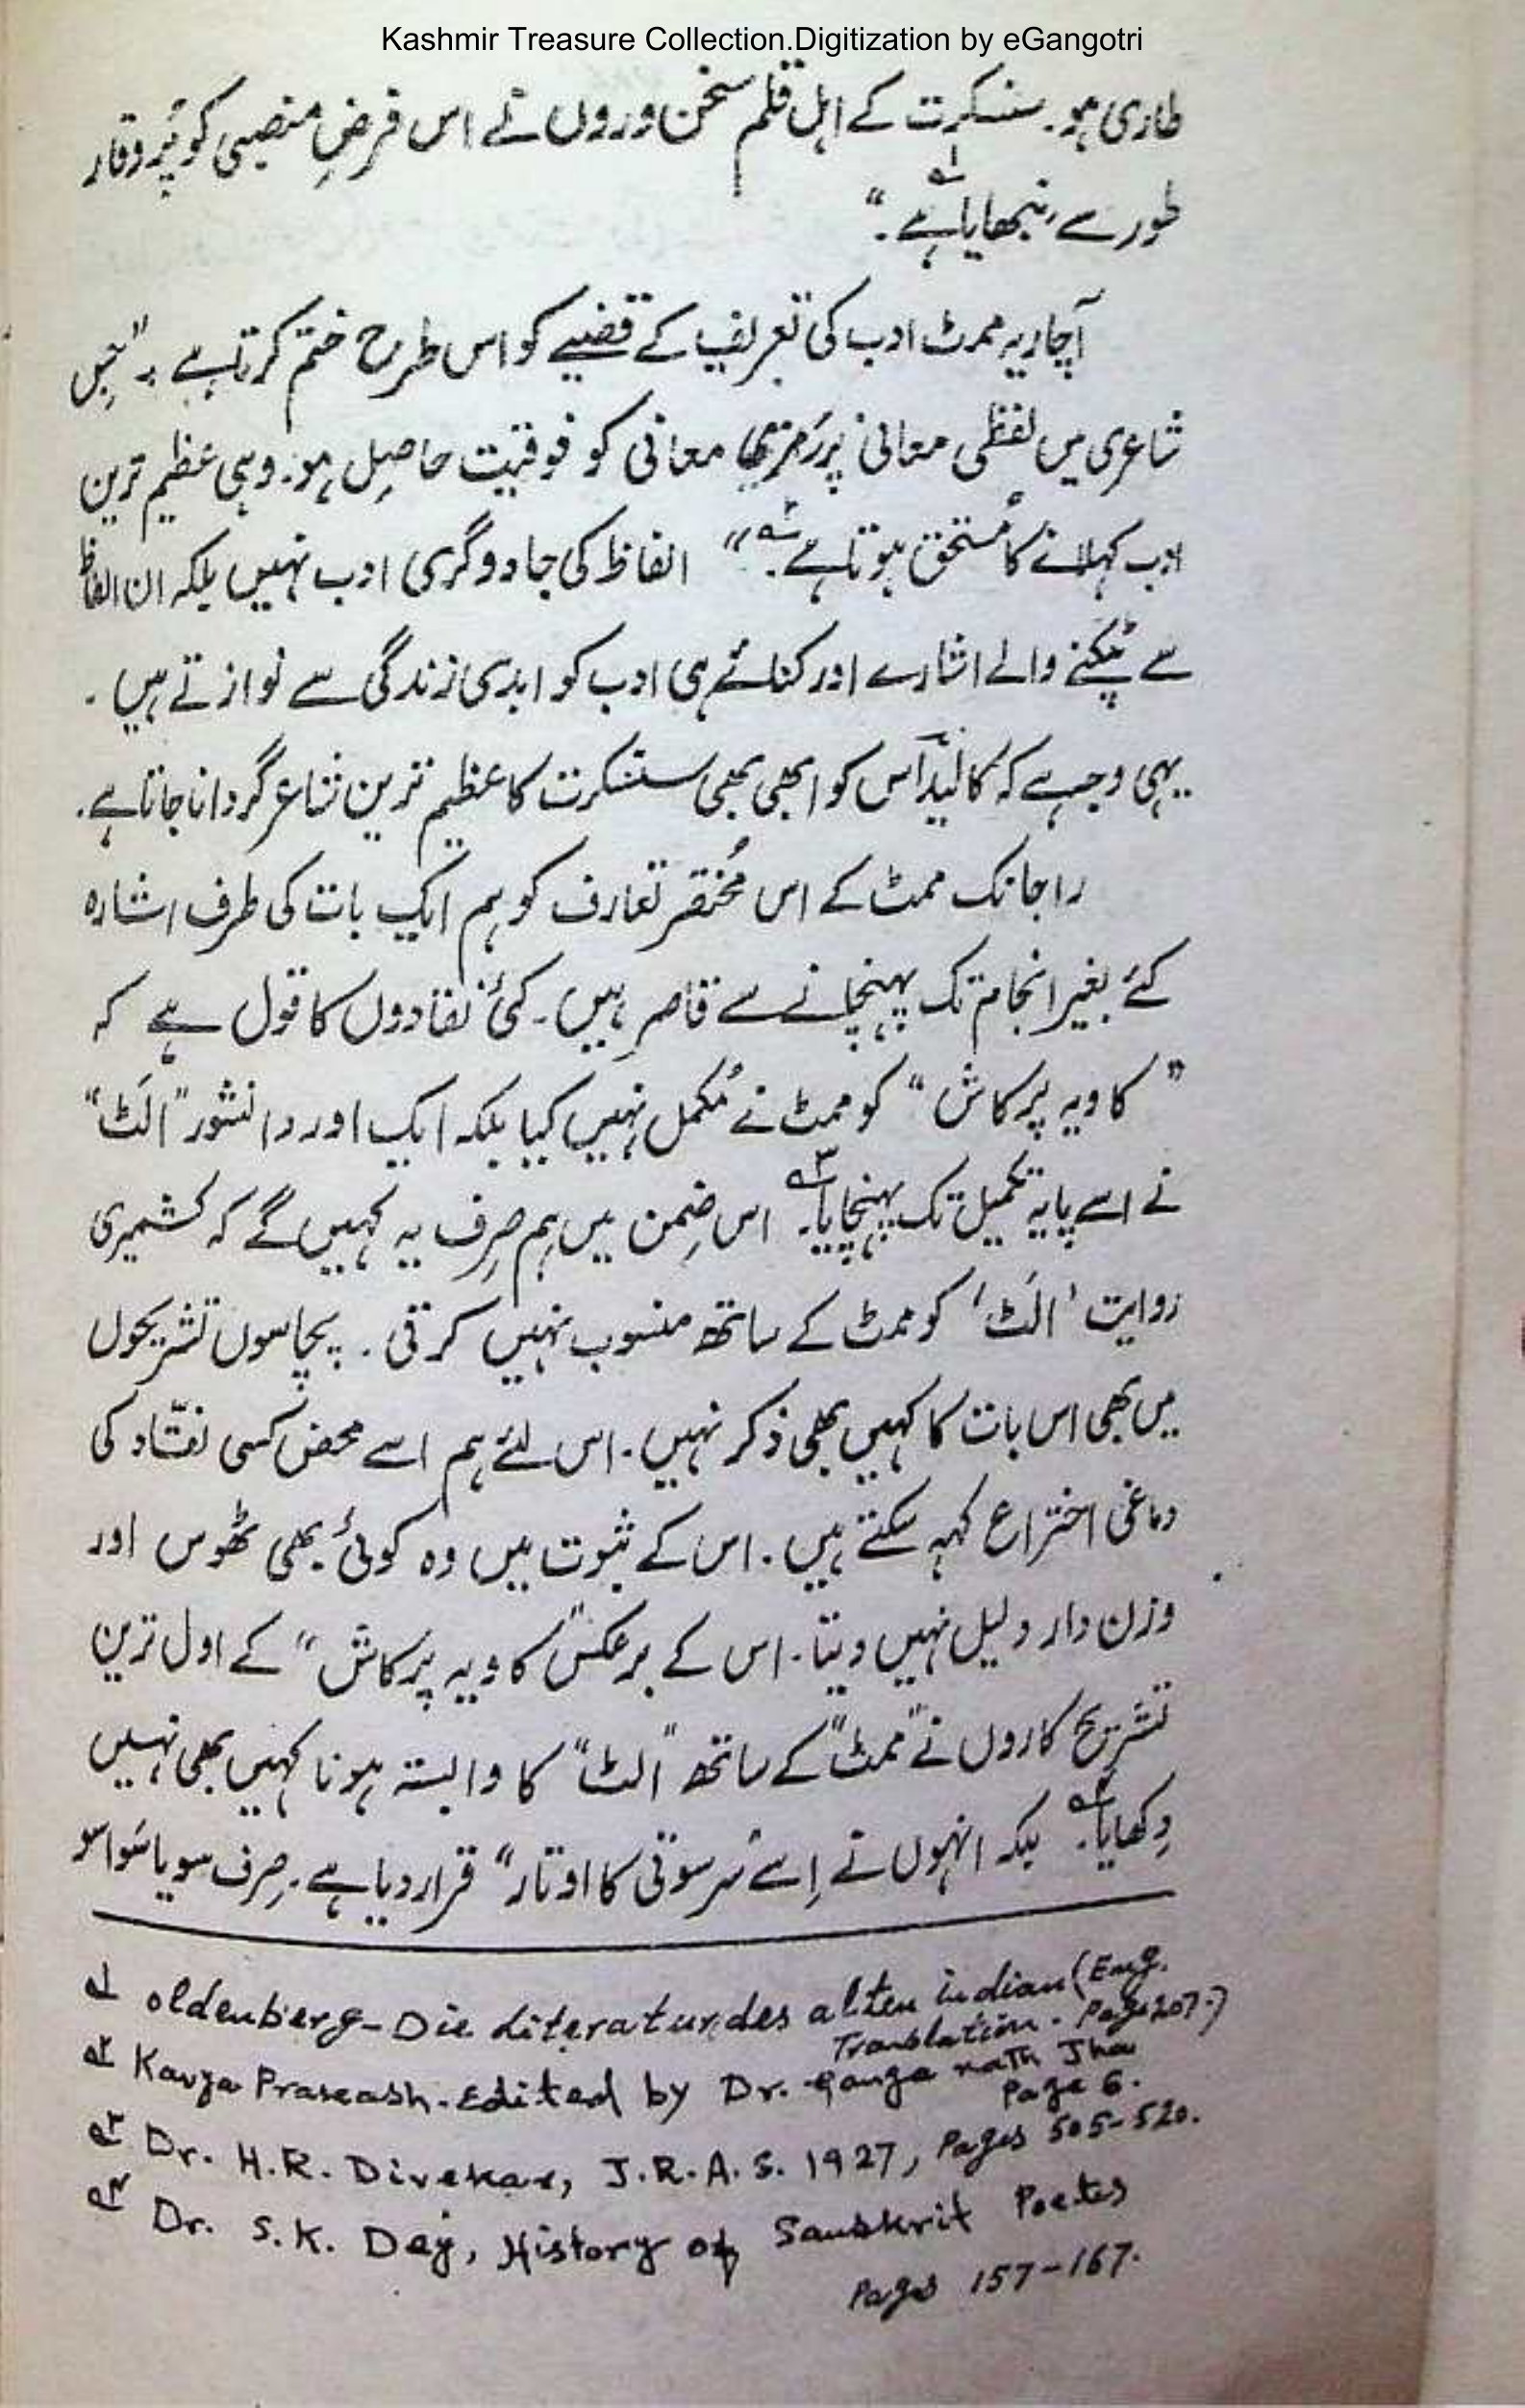 Kashmir Treasure Collection.Digitization by eGangotri
طاری ہو۔ سنسکرت کے اہل قلم سخن وروں نے اس فرضِ منصبی کو پُر وقار
طور سے نبھایا ہے۔“ ؎۱
آچاریہ ممٹ ادب کی تعریف کے قضیے کو اس طرح ختم کرتا ہے :۔ ”جِس
شاعری میں لفظی معانی پر رمزیہ معانی کو فوقیت حاصِل ہو۔ وہی عظیم ترین
ادب کہلانے کا مُستحق ہوتا ہے۔“ ؎۲ الفاظ کی جادوگری ادب نہیں بلکہ ان الفاظ
سے ٹپکنے والے اشارے اور کنائے ہی ادب کو ابدی زندگی سے نوازتے ہیں ۔
یہی وجہ ہے کہ کالیداس کو ابھی بھی سنسکرت کا عظیم ترین شاعر گردانا جاتا ہے۔
راجانک ممٹ کے اس مُختصر تعارف کو ہم ایک بات کی طرف اشارہ
کئے بغیر انجام تک پہنچانے سے قاصر ہیں۔ کئی نقادوں کا قول ہے کہ
”کاویہ پرکاش“ کو ممٹ نے مُکمل نہیں کیا بلکہ ایک اور دانشور ”الَٹ“
نے اسے پایہ تکمیل تک پہنچایا۔ ؎۳ اس ضِمن میں ہم صِرف یہ کہیں گے کہ کشمیری
روایت ’الَٹ‘ کو ممٹ کے ساتھ منسوب نہیں کرتی ۔ پچاسوں تشریحوں
میں بھی اس بات کا کہیں بھی ذکر نہیں۔ اس لئے ہم اسے محض کسی نقّاد کی
دماغی اختراع کہہ سکتے ہیں ۔ اس کے ثبوت میں وہ کوئی بھی ٹھوس اور
وزن دار دلیل نہیں دیتا۔ اس کے برعکس ”کاویہ پرکاش“ کے اول ترین
تشریح کاروں نے ”ممٹ“ کے ساتھ ”الٹ“ کا وابستہ ہونا کہیں بھی نہیں
دِکھایا۔ ؎۴ بلکہ انہوں نے اِسے ”سرسوتی کا اوتار“ قرار دیا ہے۔ صِرف سو یا سَوا سو
؎۱ Oldenberg - Die Literatur des alten indian (Eng.
Translation. Page 207.)
؎۲ Kavya Prakash. Edited by Dr. Ganga nath Jha
Page 6.
؎۳ Dr. H.R. Divekar, J.R.A.S. 1927, Pages 505-520.
؎۴ Dr. S.K. Dey, History of Sanskrit Poetes
Pages 157-167.